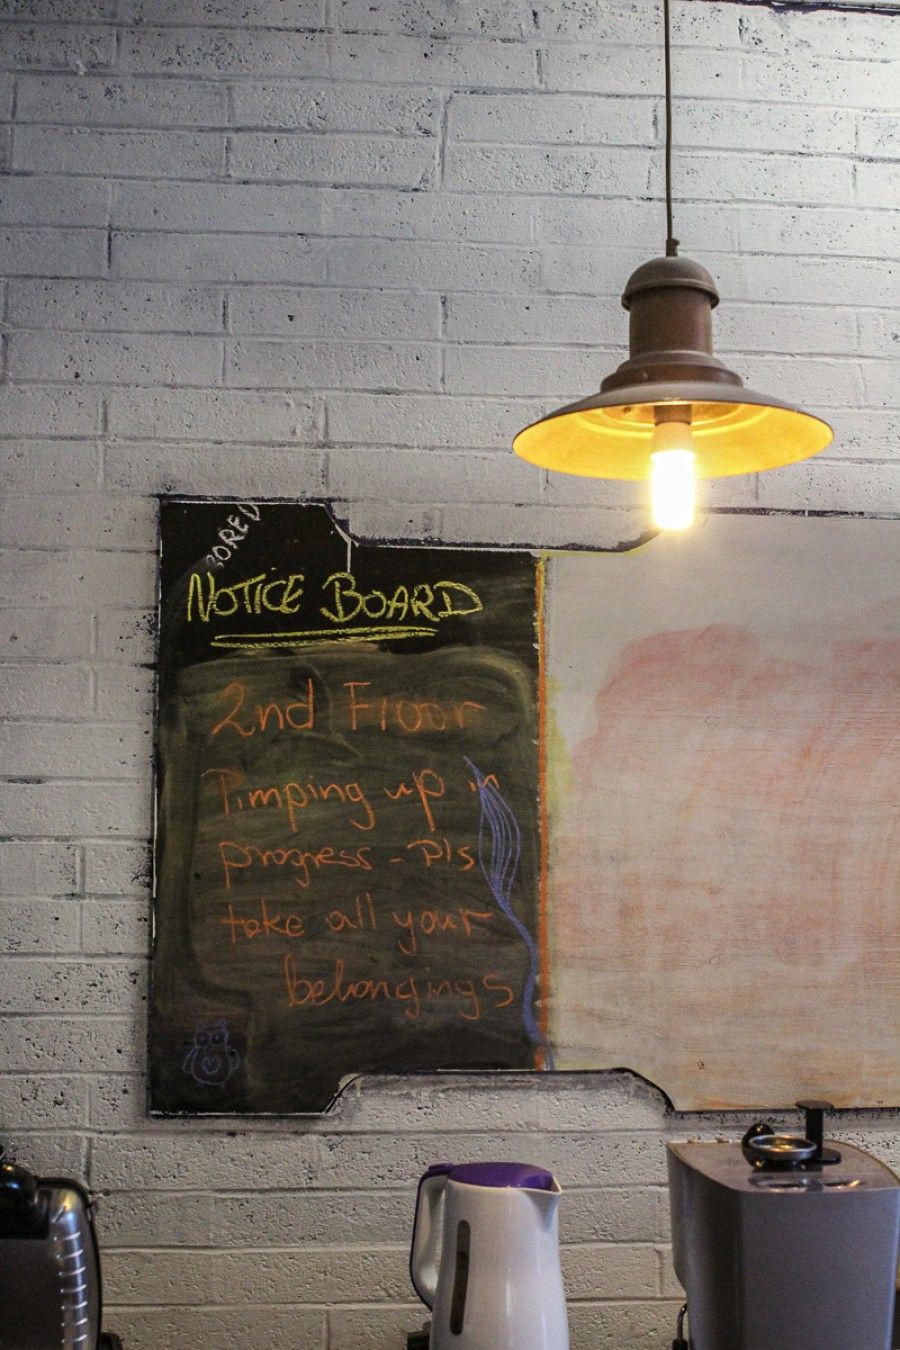 BORED
NOTICE BOARD
2nd Floor
Pimping up in
progress - Pls
take all your
belongings